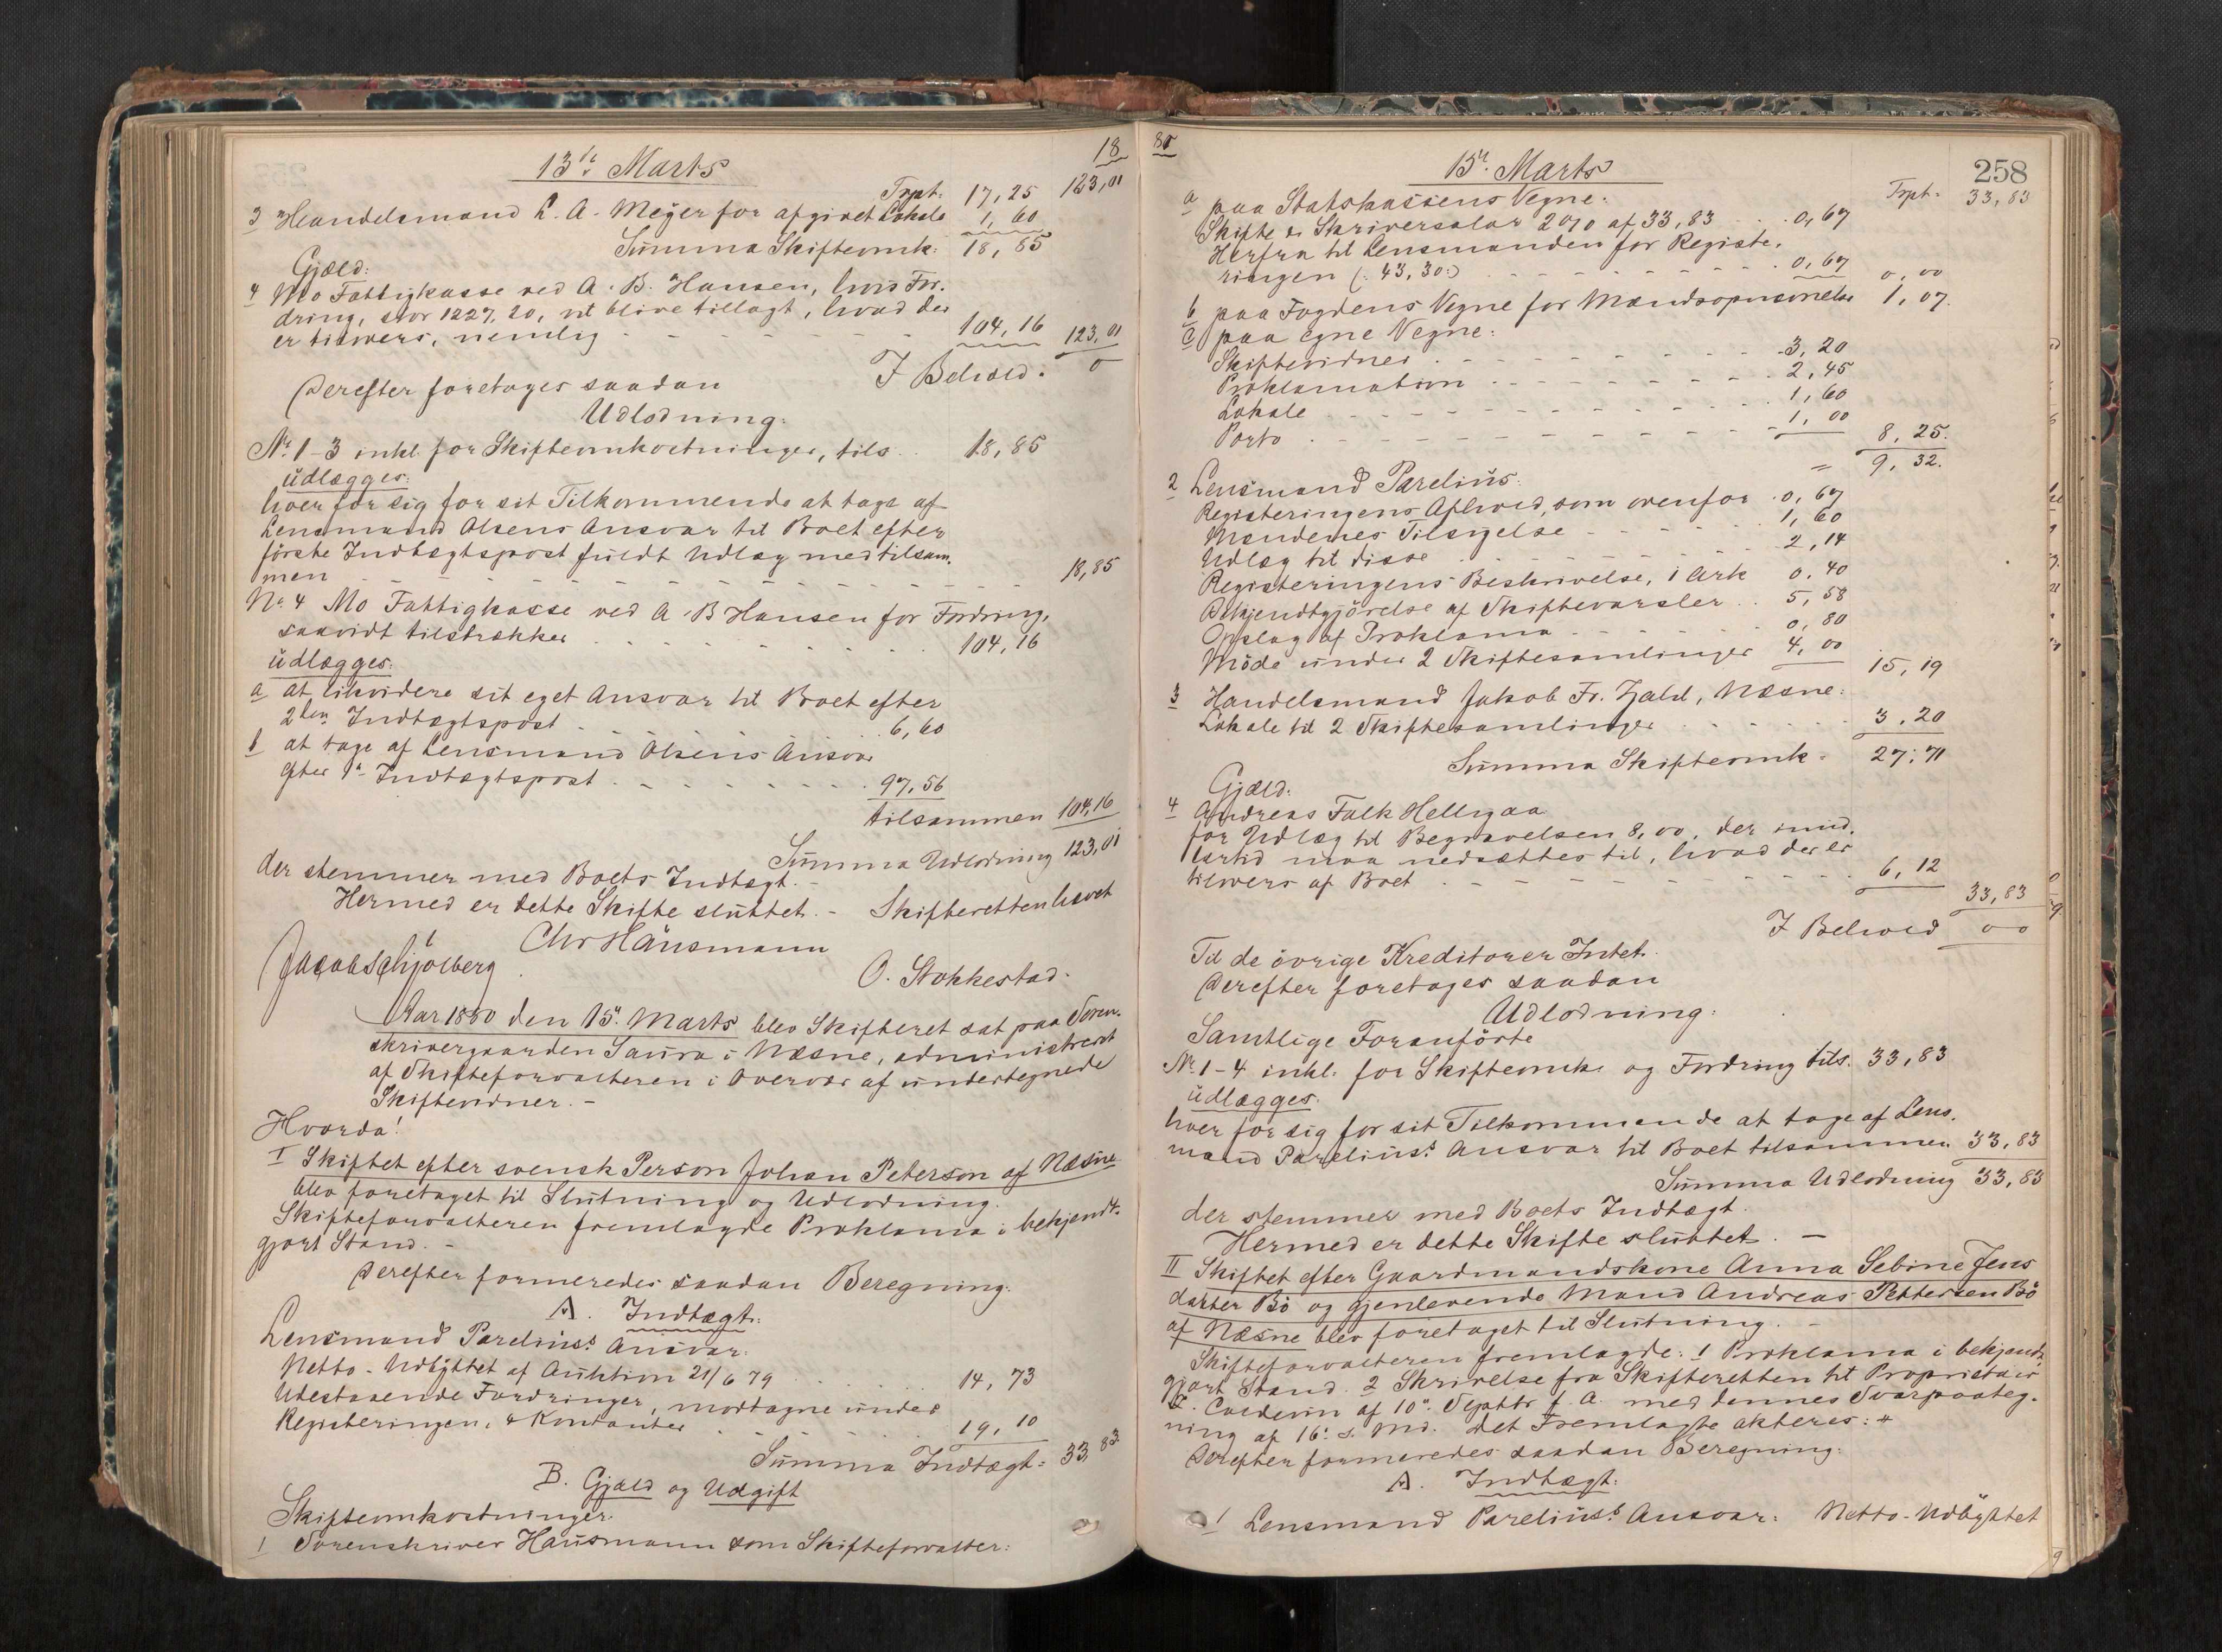 18
13de Marts
Trpt. 17,25 123,01
3 Handelsmand L. A. Meyer for afgivet Lokale 1,60
Summa Skifteomk. 18,85
Gjæld:
4 Mo Fattigkasse ved A. B. Hansen, hvis For-
dring, stor 1227,20, vil blive tillagt, hvad der
er tilovers, nemlig 104,16 123,01
I Behold. 0
Derefter foretoges saadan
Udlodning:
No 1-3 inkl. for Skifteomkostninger, tils. 18,85
udlægges:
hver for sig for sit Tilkommende at tage af
Lensmand Olsens Ansvar til Boet efter
første Indtægtspost fuldt Udlæg med tilsam-
men 18,85
No 4 Mo Fattigkasse ved A. B Hansen for Fordring,
saavidt tilstrækker 104,16
udlægges:
a at likvidere sit eget Ansvar til Boet efter
2den Indtægtspost 6,60
b at tage af Lensmand Olsens Ansvar
efter 1ste Indtægtspost 97,56
tilsammen 104,16
Summa Udlodning 123,01
der stemmer med Boets Indtægt.-
Hermed er dette Skifte sluttet. - Skifteretten hævet
Chr Hausmann
Jacob Schjølberg. O. Stokkestad.
Aar 1880 den 15de Marts blev Skifteret sat paa Soren-
skrivergaarden Saura i Næsne, administreret
af Skifteforvalteren i Overvær af undertegnede
Skiftevidner. -
Hvorda!
I Skiftet efter svensk Person Johan Peterson af Næsne
blev foretaget til Slutning og Udlodning.
Skifteforvalteren fremlagde Proklama i bekjendt-
gjort Stand. -
Derefter formeredes saadan Beregning:
A. Indtægt:
Lensmand Parelius's Ansvar:
Netto-Udbyttet af Auktion 21/6 79 14,73
Udestaaende Fordringer, modtagne under
Registeringen, & Kontanter 19,10
Summa Indtægt: 33,83
B. Gjæld og Udgift
Skifteomkostninger:
1 Sorenskriver Hausmann som Skifteforvalter:
80
15de Marts
258
Trpt. 33,83
a paa Statskassens Vegne:
Skifte & Skriversalær 2% af 33,83 0,67
Herfra til Lensmanden for Registe-
ringen (: 43,30:) 0,67 0,00
b paa Fogdens Vegne for Mandsopnævnelse 1,07.
c paa egne Vegne:
Skiftevidner 3,20
Proklamation 2,45
Lokale 1,60
Porto 1,00
8,25.
= 9,32.
2 Lensmand Parelius:
Registeringens Afhold, som ovenfor 0,67
Mændenes Tilsigelse 1,60
Udlæg til disse 2,14
Registeringens Beskrivelse, 1 Ark 0,40
Bekjendtgjørelse af Skiftevarsler 5,58
Opslag af Proklama 0,80
Møde under 2 Skiftesamlinger 4,00
15,19
3 Handelsmand Jakob Fr. Zahl, Næsne:
Lokale til 2 Skiftesamlinger 3,20
Summa Skifteomk. 27,71
Gjæld:
4 Andreas Falk Hellygaa
for Udlæg til Begravelsen 8,00, der imid-
lertid maa nedsættes til, hvad der er
tilovers af Boet 6,12
33,83
I Behold 00
Til de øvrige Kreditorer Intet.
Derefter foretoges saadan
Udlodning:
Samtlige Foranførte
No 1-4 inkl. for Skifteomk. og Fordring tils. 33,83
udlægges:
hver for sig for sit Tilkommende at tage af Lens-
mand Parelius's Ansvar til Boet tilsammen 33,83
Summa Udlodning 33,83
der stemmer med Boets Indtægt.
Hermed er dette Skifte sluttet. -
II Skiftet efter Gaardmandskone Anna Sebine Jens
datter Bø og gjenlevende Mand Andreas Pettersen Bø
af Næsne blev foretaget til Slutning. -
Skifteforvalteren fremlagde: 1 Proklama i bekjendt-
gjort Stand. 2 Skrivelse fra Skifteretten til Proprietær
Coldevin af 10de Septbr f. A. med dennes Svarpaateg-
ning af 16de s. Md. Det Fremlagte akteres:
Derefter formeredes saadan Beregning:
A. Indtægt:
1 Lensmand Parelius's Ansvar: Netto-Udbyttet